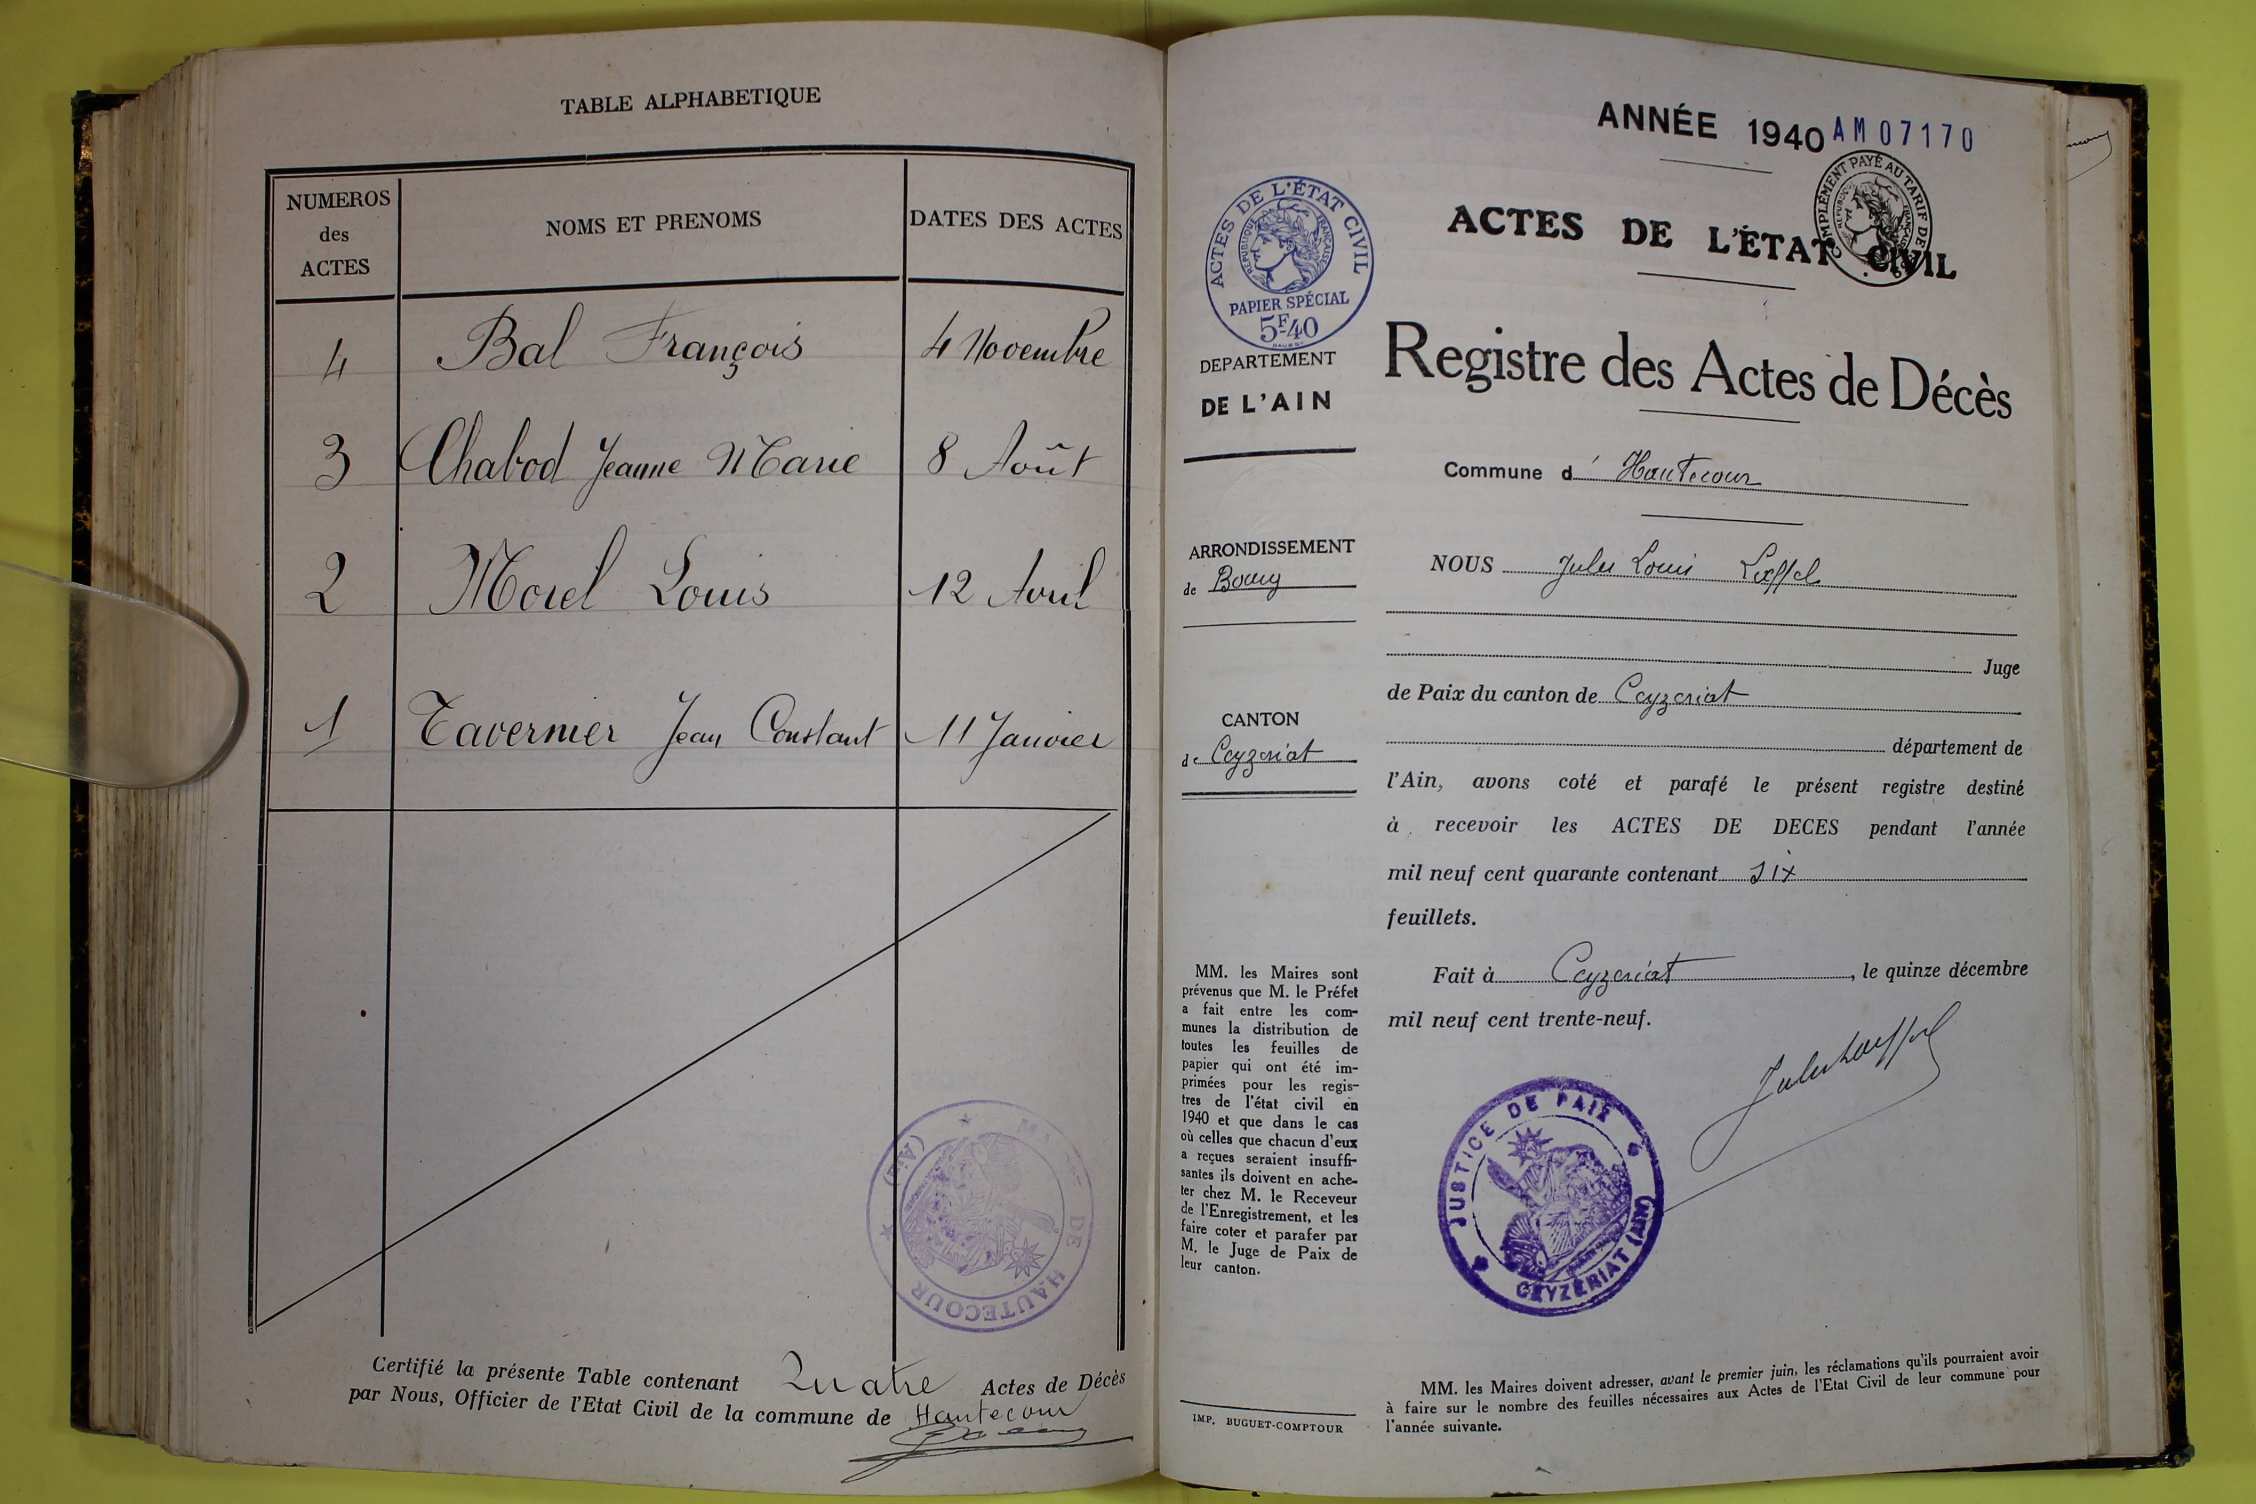 TABLE ALPHABETIQUE
NUMEROS
des
ACTES
NOMS ET PRENOMS
DATES DES ACTES
4 Bal François 4 Novembre
3 Chabod Jeanne Marie 8 Août
2 Morel Louis 12 Avril
1 Tavernier Jean Constant 11 Janvier
DE HAUTECOUR (AIN)
Certifié la présente Table contenant Quatre Actes de Décès
par Nous, Officier de l'Etat Civil de la commune de Hautecour
ANNÉE 1940 AM07170
COMPLÉMENT PAYÉ AU TARIF DE
RÉPUBLIQUE FRANÇAISE
ACTES DE L'ÉTAT CIVIL
ACTES DE L'ÉTAT CIVIL
RÉPUBLIQUE FRANÇAISE
PAPIER SPÉCIAL
5F40
DEPARTEMENT
DE L'AIN
Registre des Actes de Décès
Commune d' Hautecour
ARRONDISSEMENT
de Bourg
NOUS Jules Louis Lœffel
Juge
de Paix du canton de Ceyzeriat
CANTON
de Ceyzeriat
département de
l'Ain, avons coté et parafé le présent registre destiné
à recevoir les ACTES DE DECES pendant l'année
mil neuf cent quarante contenant six
feuillets.
Fait à Ceyzeriat, le quinze décembre
mil neuf cent trente-neuf.
MM. les Maires sont
prévenus que M. le Préfet
a fait entre les com-
munes la distribution de
toutes les feuilles de
papier qui ont été im-
primées pour les regis-
tres de l'état civil en
1940 et que dans le cas
où celles que chacun d'eux
a reçues seraient insuffi-
santes ils doivent en ache-
ter chez M. le Receveur
de l'Enregistrement, et les
faire coter et parafer par
M. le Juge de Paix de
leur canton.
Jules Lœffel
JUSTICE DE PAIX
CEYZÉRIAT (AIN)
IMP. BUGUET-COMPTOUR
MM. les Maires doivent adresser, avant le premier juin, les réclamations qu'ils pourraient avoir
à faire sur le nombre des feuilles nécessaires aux Actes de l'Etat Civil de leur commune pour
l'année suivante.